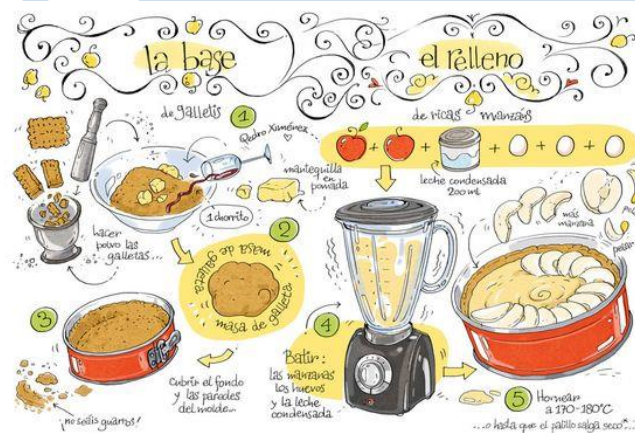 la base
de galletis
1
Pedro Ximénez
mantequilla
en
pomada
1 chorrito
hacer
polvo las
galletas...
2
masa de galleta
masa de galleta
3
Cubrir el fondo
y las paredes
del molde...
¡no seáis guarros!
el relleno
de ricas manzanis
+
+
+
+
+
leche condensada
200 ml
más
manzana
4
Batir:
las manzanas
los huevos
y la leche
condensada
5
Hornear
a 170-180°C
...o hasta que el palillo salga seco"...